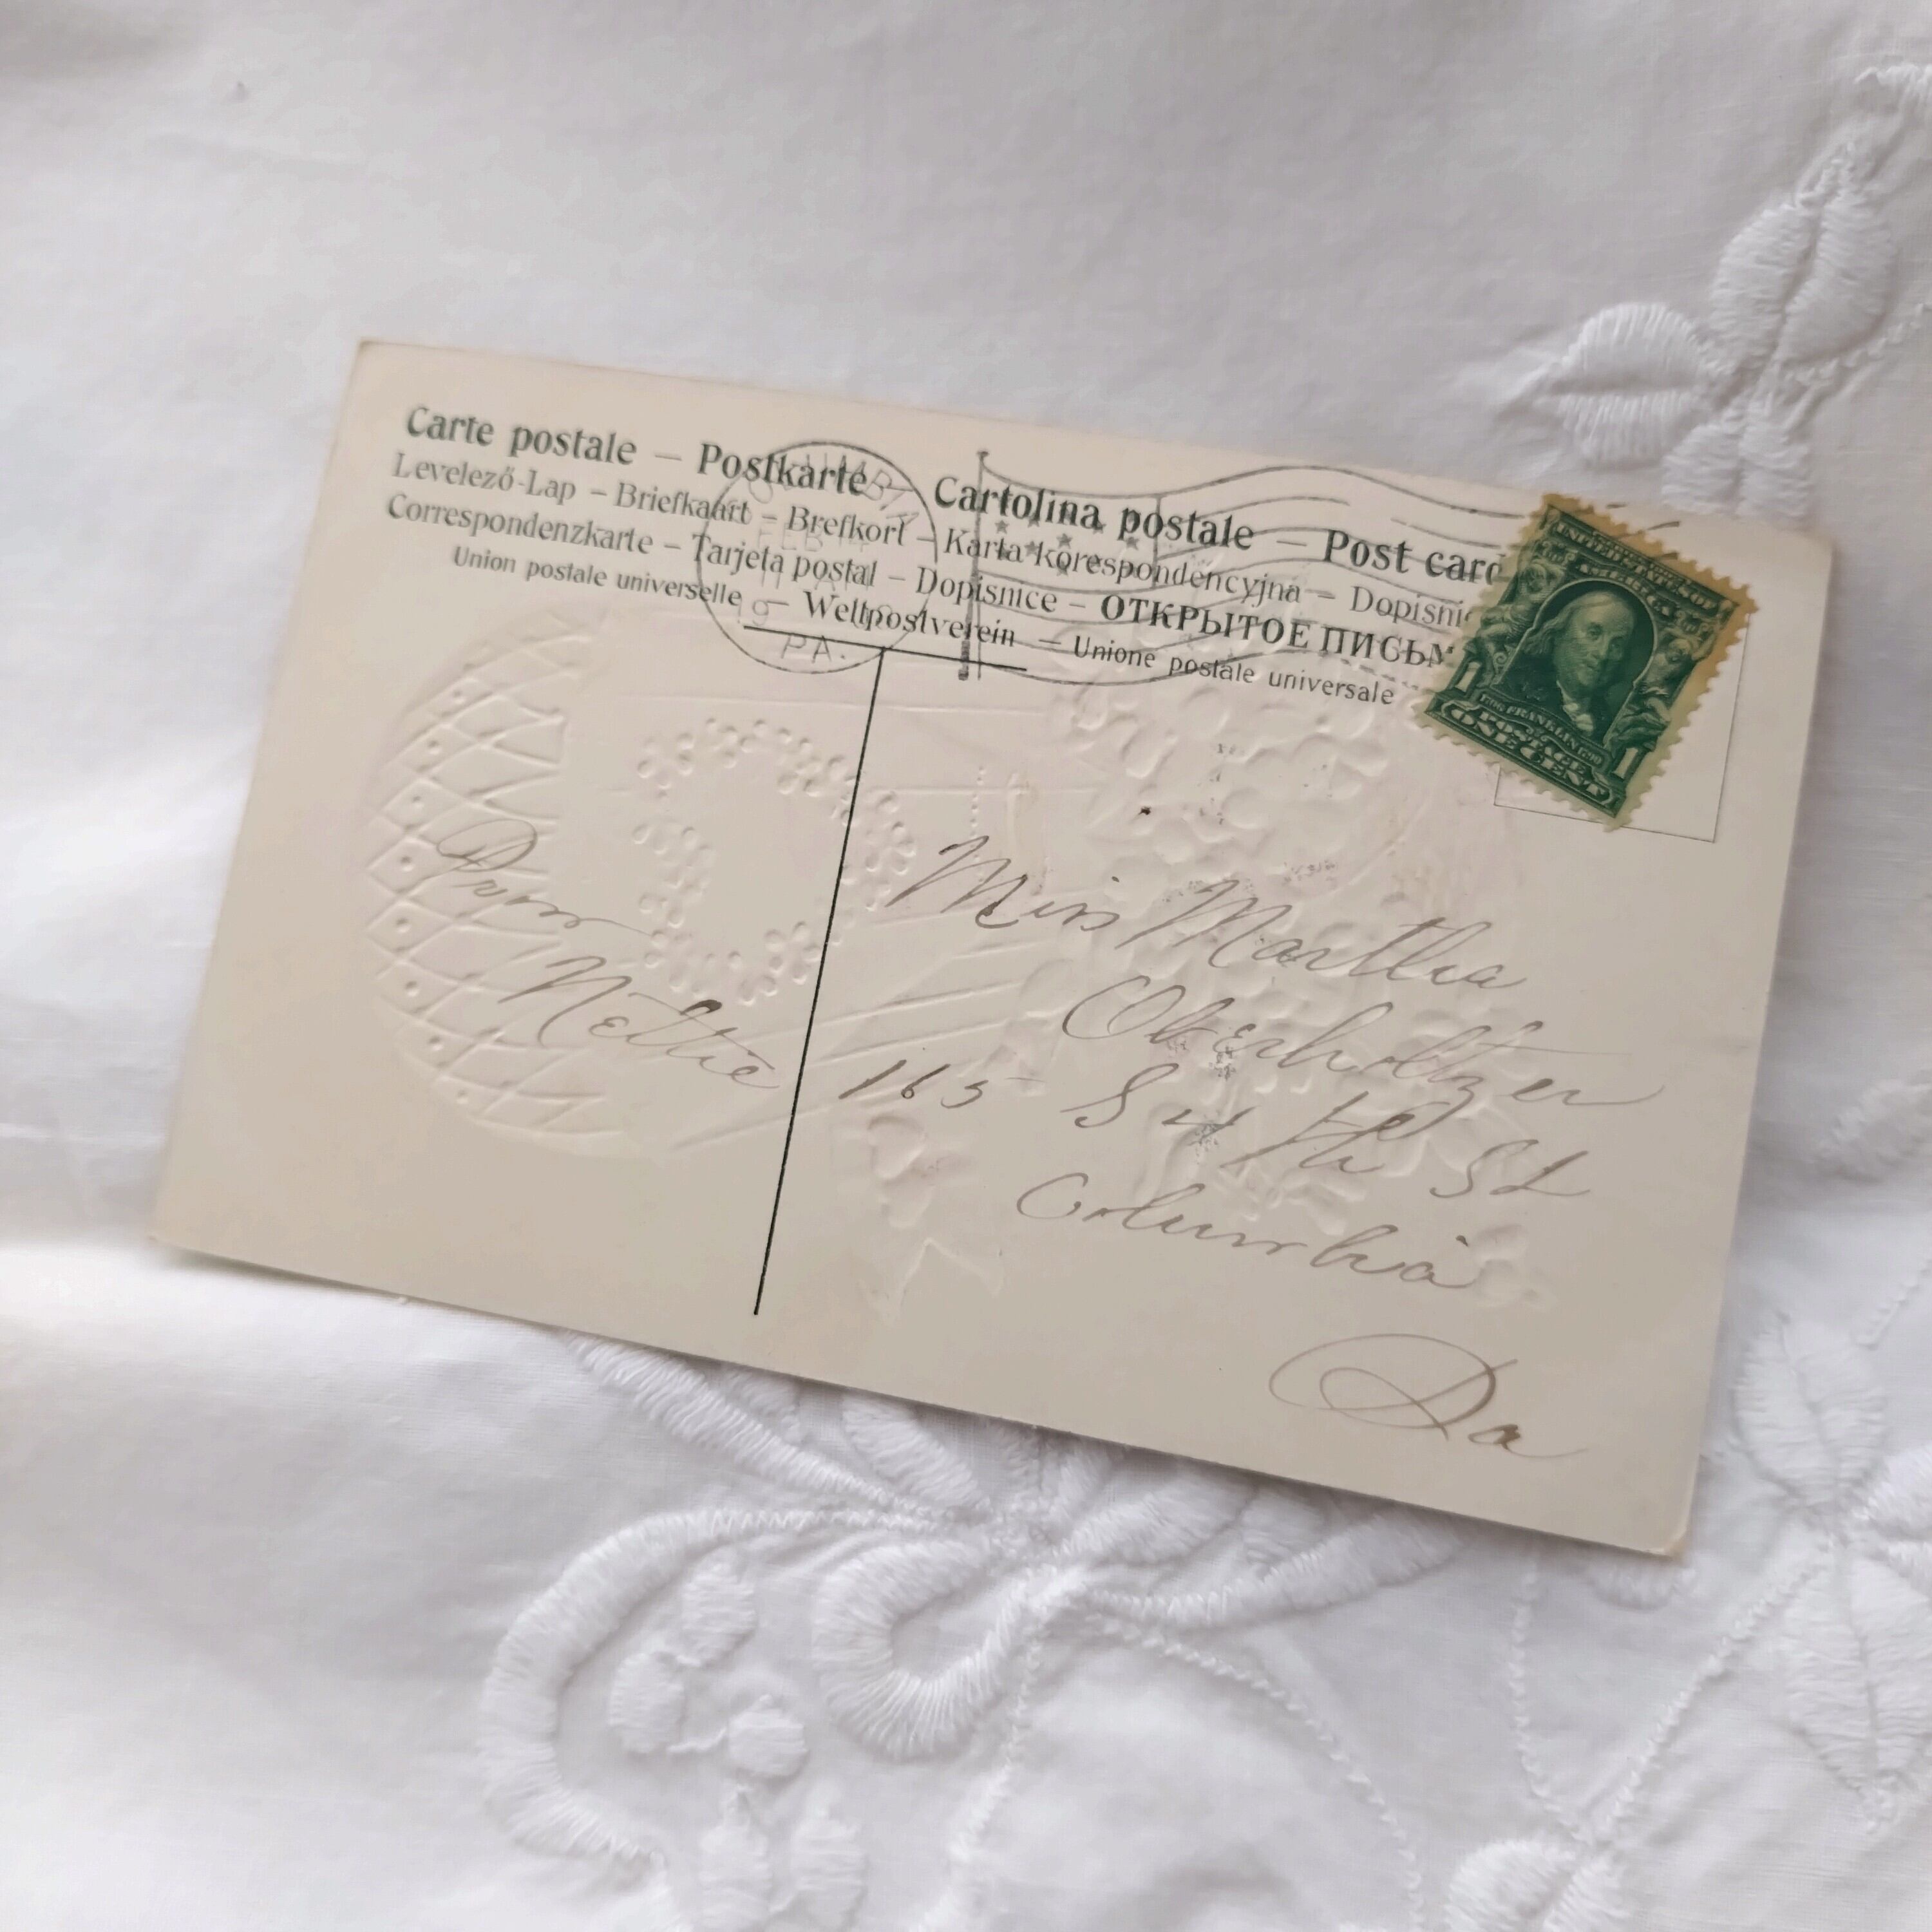 Carte postale – Postkarte – Cartolina postale – Post card
Levelező-Lap – Briefkaart – Brefkort – Karta korespondencyjna – Dopisnic
Correspondenzkarte – Tarjeta postal – Dopisnice – ОТКРЫТОЕ ПИСЬМ
Union postale universelle – Weltpostverein – Unione postale universale
FEB
PA.
UNITED STATES OF
AMERICA
FRANKLIN
POSTAGE
1 ONE CENT 1
From
Nettie
Miss Martha
Oberholtzer
165 S 4th St
Columbia
Pa